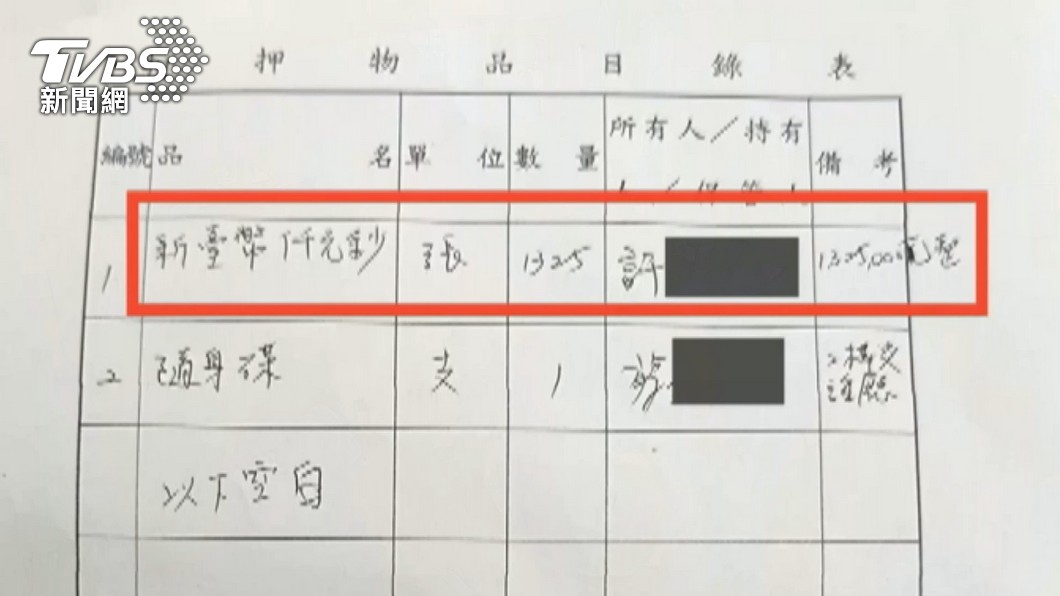 TVBS
新聞網
押物品目錄表
編號 品名 單位 數量 所有人／持有 備考
1 新臺幣仟元鈔 張 1325 許 1325,00
2 隨身碟 支 1
以下空白